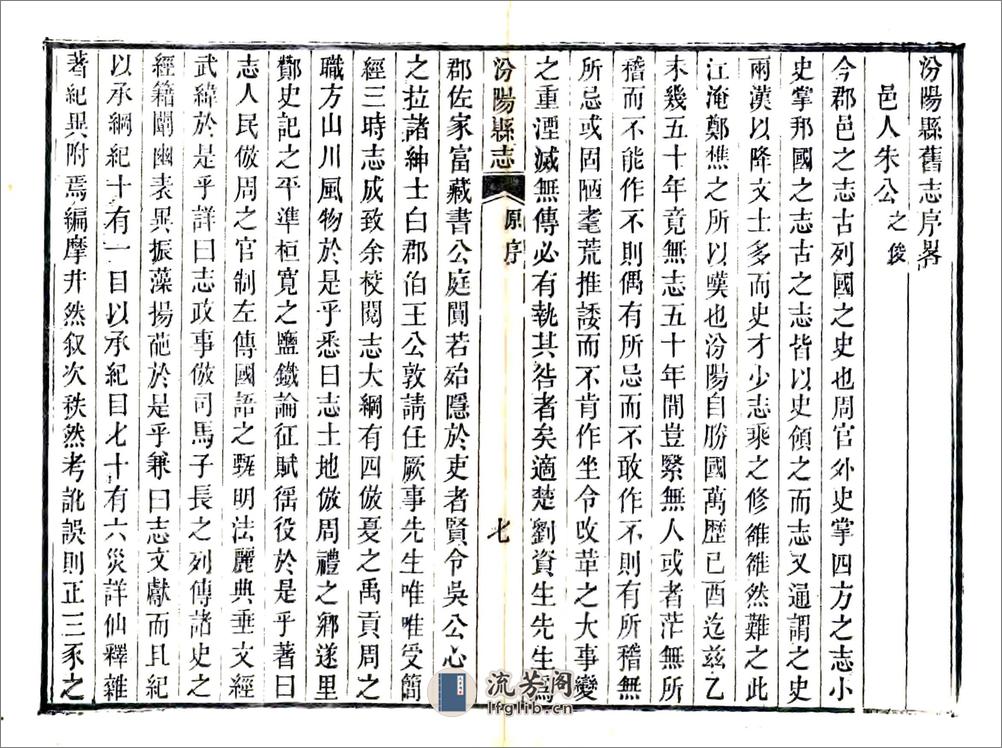 汾陽縣舊志序畧
邑人朱公之俊
今郡邑之志古列國之史也周官外史掌四方之志小
史掌邦國之志古之志皆以史領之而志又通謂之史
兩漢以降文士多而史才少志乘之修雒雒然難之此
江淹鄭樵之所以嘆也汾陽自勝國萬歷已酉迄茲乙
未幾五十年竟無志五十年間豈緊無人或者茫無所
稽而不能作不則偶有所忌而不敢作不則有所稽無
所忌或固陋耄荒推諉而不肯作坐令改革之大事變
之重湮滅無傳必有執其咎者矣適楚劉資生先生為
汾陽縣志
原序
七
郡佐家富藏書公庭闃若始隱於吏者賢令吳公心
之拉諸紳士白郡伯王公敦請任厥事先生唯唯受簡
經三時志成致余校閱志大綱有四倣夏之禹貢周之
職方山川風物於是乎悉曰志土地倣周禮之鄉遂里
酇史記之平準桓寬之鹽鐵論征賦徭役於是乎著曰
志人民倣周之官制左傳國語之甄明法麗典垂文經
武緯於是乎詳曰志政事倣司馬子長之列傳諸史之
經籍闡幽表異振藻揚葩於是乎兼曰志文獻而且紀
以承綱紀十有一目以承紀目七十有六災詳仙釋雜
著紀異附焉編摩井然叙次秩然考訛誤則正三豕之
流芳閣
lfglib.cn